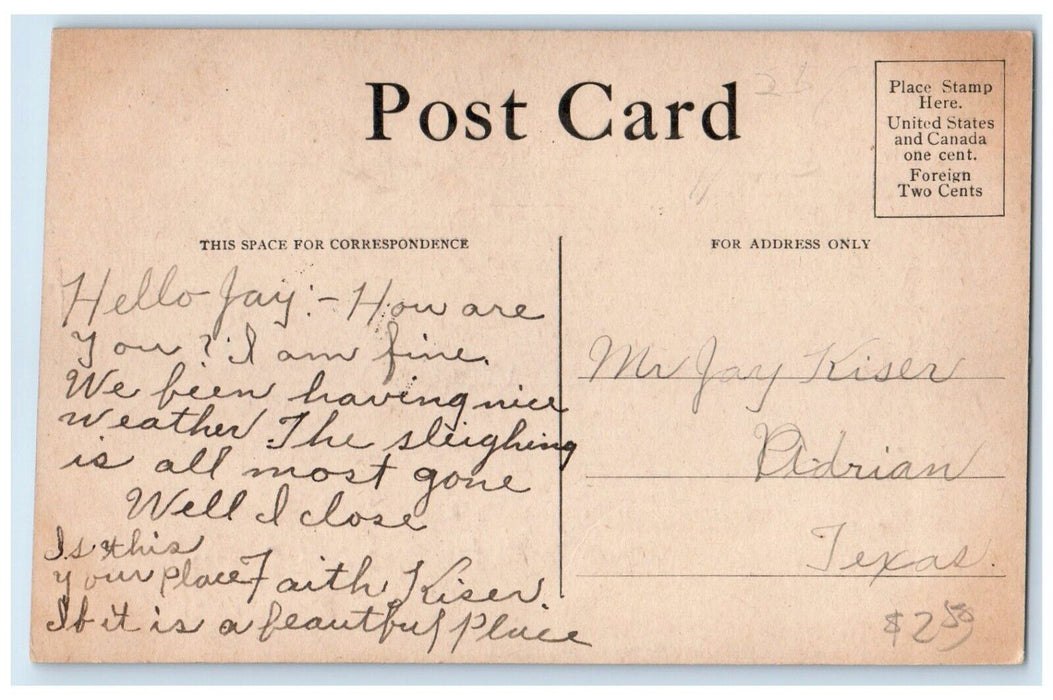 Post Card
Place Stamp
Here.
United States
and Canada
one cent.
Foreign
Two Cents
THIS SPACE FOR CORRESPONDENCE
Hello Jay:- How are
you? I am fine.
We been having nice
weather. The sleighing
is all most gone
Well I close
Is this
your place
Faith Kiser.
If it is a beautiful place
FOR ADDRESS ONLY
Mr Jay Kiser
Adrian
Texas.
$2.50